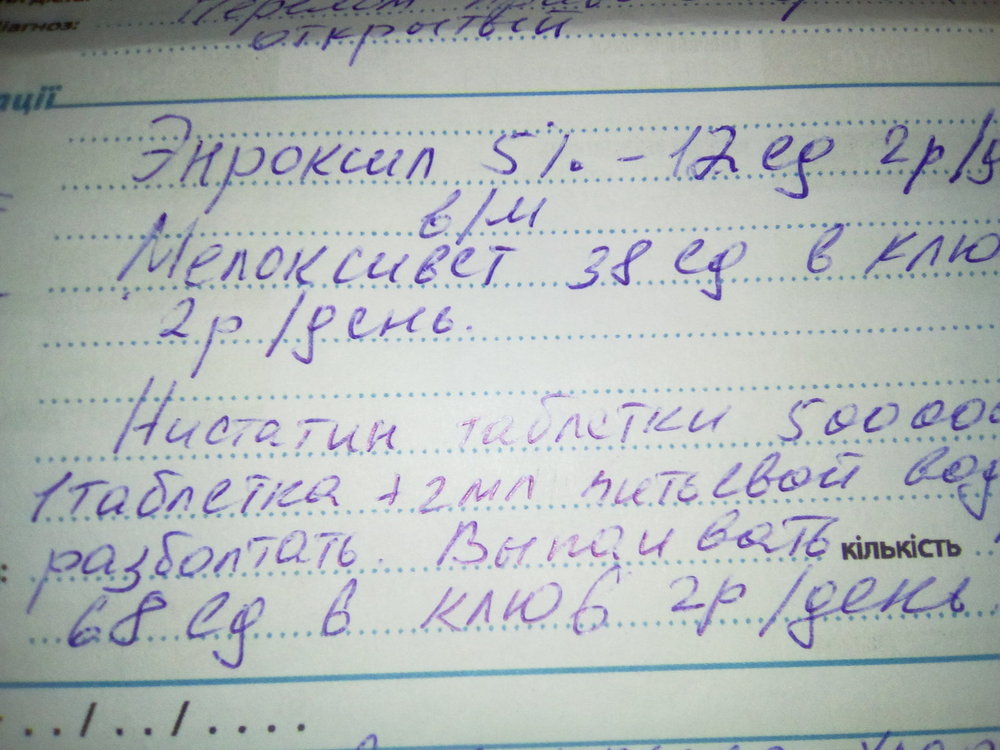 діагноз: Перелом
открытый
ації
Энроксил 5% - 12 ед 2р/д
в/м
Мелоксивет 38 ед в клю
2р/день.
Нистатин таблетки 50000
1 таблетка + 2мл питьевой вод
разболтать. Выпаивать кількість
68 ед в клюв 2р/день
../../....